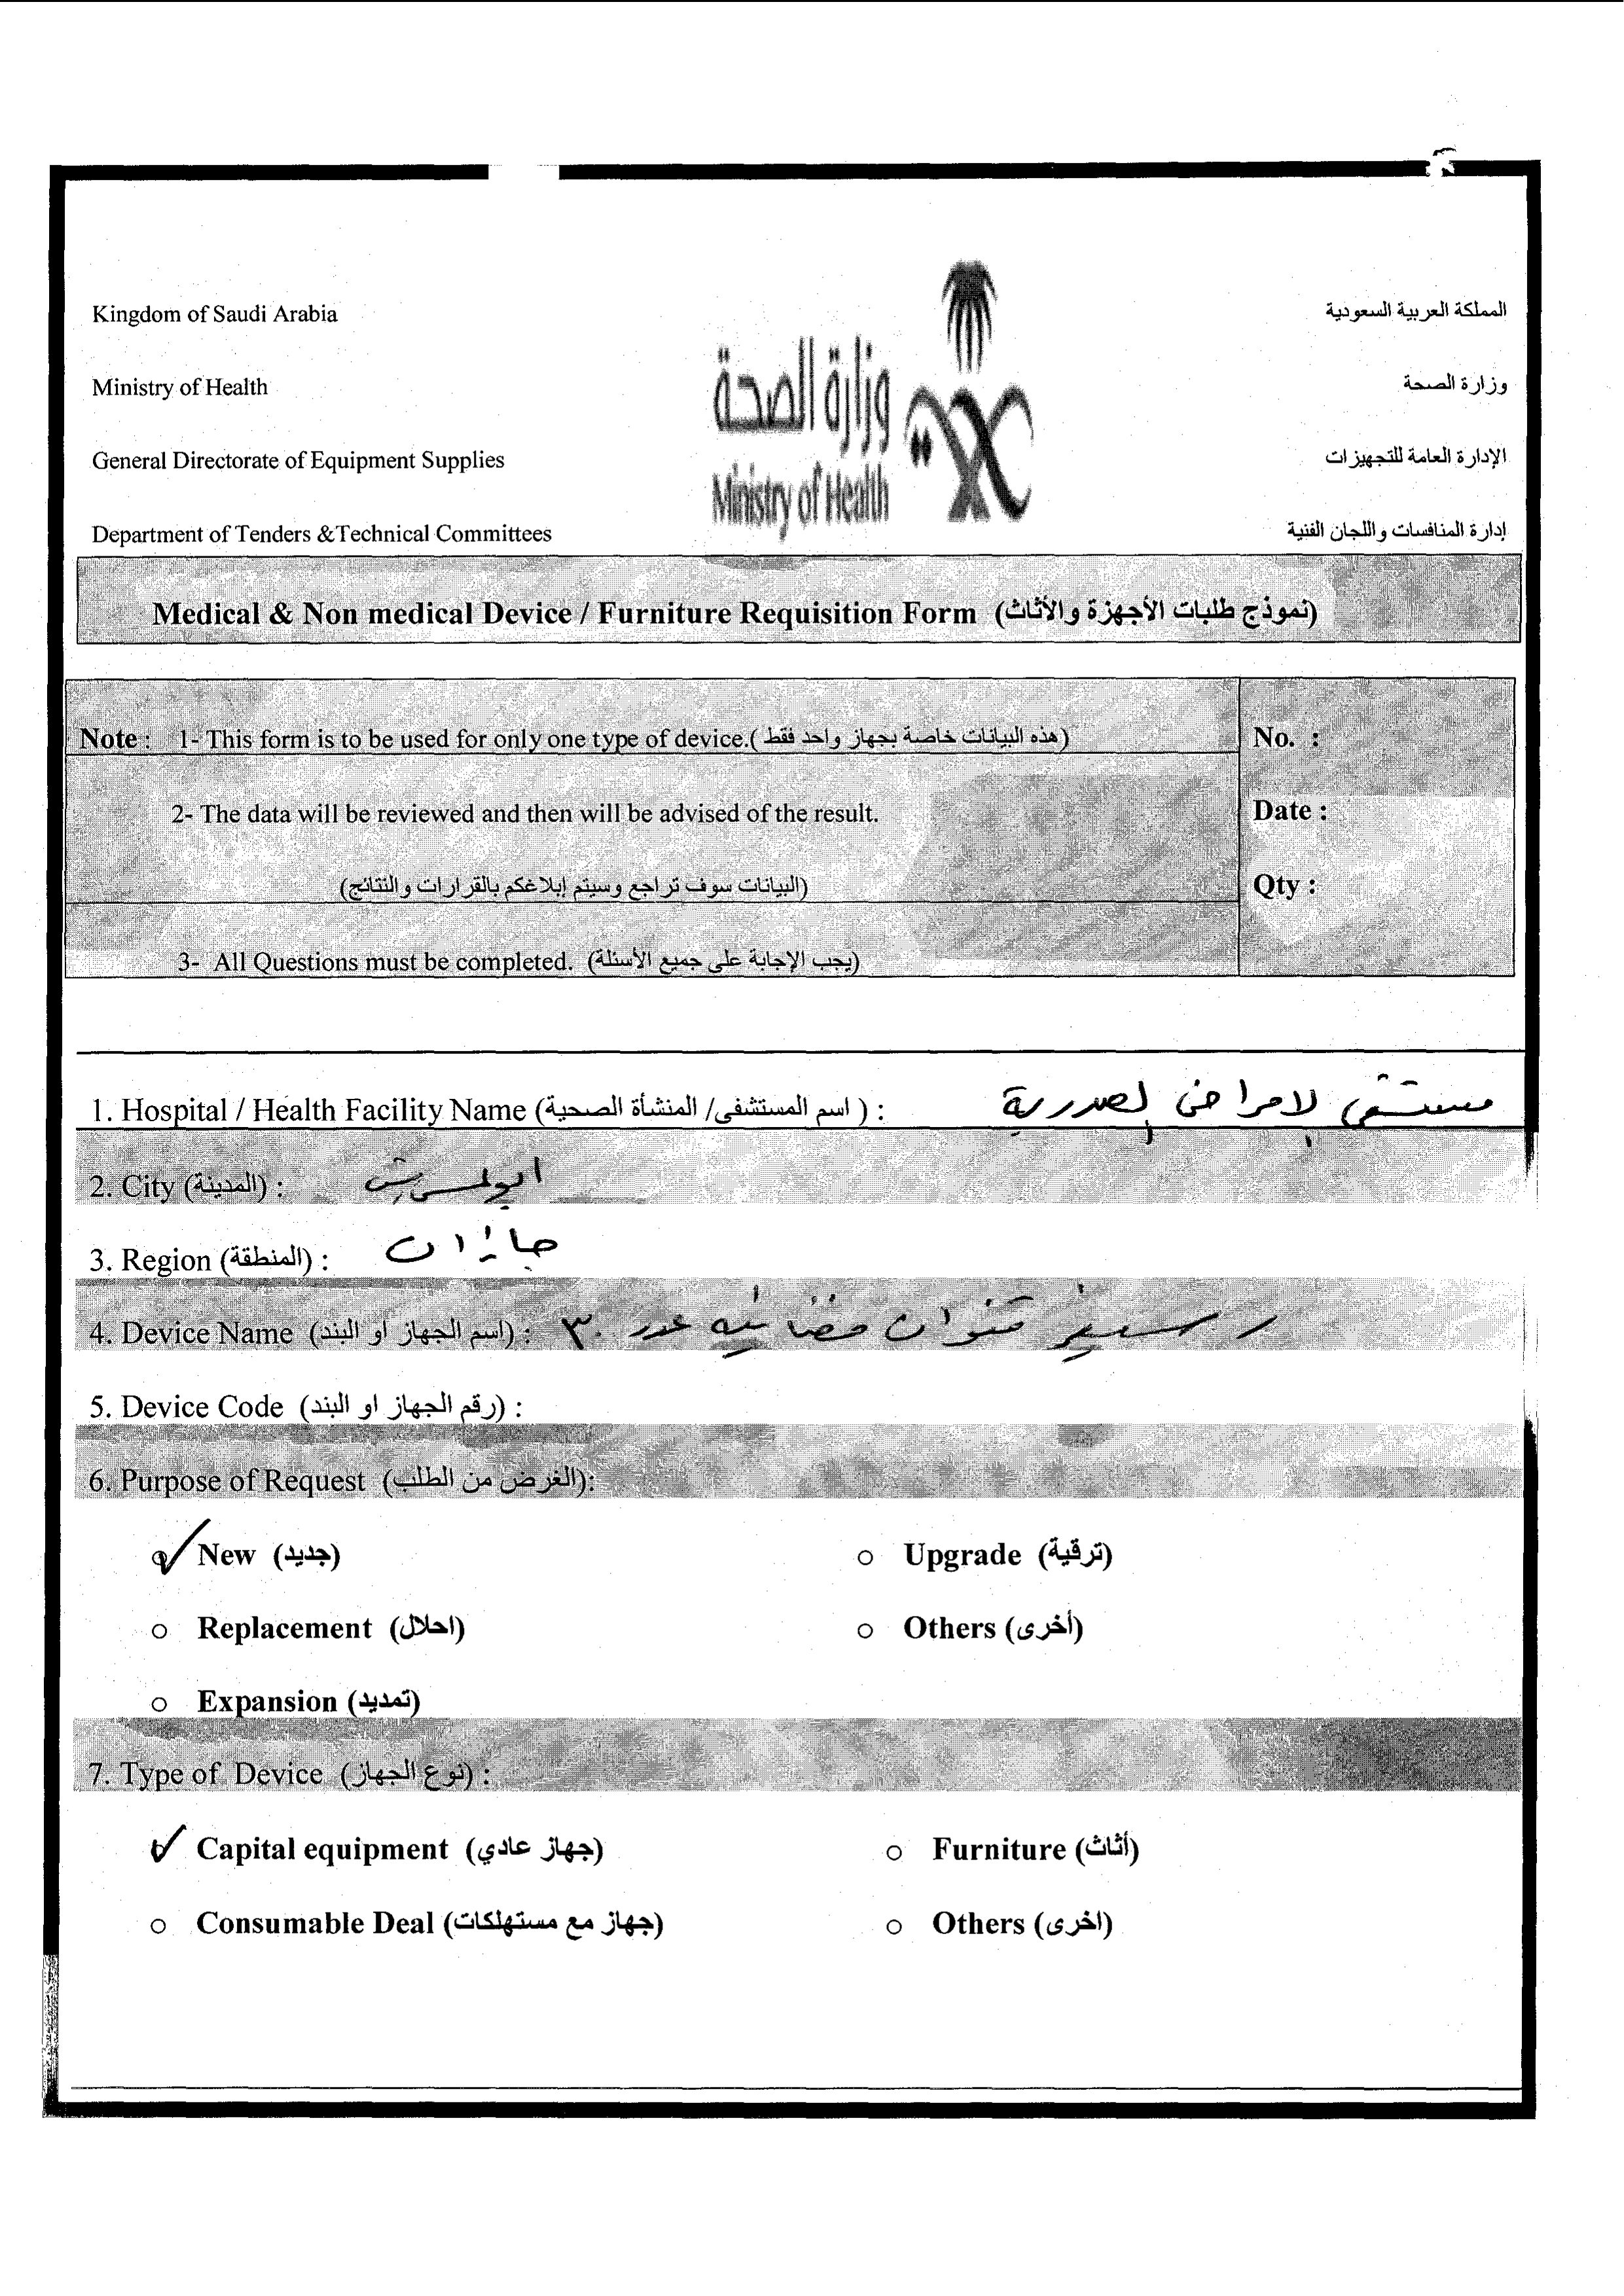 Kingdom of Saudi Arabia
المملكة العربية السعودية
Ministry of Health
وزارة الصحة
General Directorate of Equipment Supplies
الإدارة العامة للتجهيزات
Department of Tenders &Technical Committees
إدارة المنافسات واللجان الفنية
وزارة الصحة
Ministry of Health
Medical & Non medical Device / Furniture Requisition Form (نموذج طلبات الأجهزة والأثاث)
Note : 1- This form is to be used for only one type of device.( هذه البيانات خاصة بجهاز واحد فقط)
No. :
2- The data will be reviewed and then will be advised of the result.
Date :
(البيانات سوف تراجع وسيتم إبلاغكم بالقرارات والنتائج)
Qty :
3- All Questions must be completed. (يجب الإجابة على جميع الأسئلة)
1. Hospital / Health Facility Name (اسم المستشفى/ المنشأة الصحية ) : مستشفى الامراض الصدرية
2. City (المدينة) : ابوعريش
3. Region (المنطقة) : جازان
4. Device Name (اسم الجهاز او البند) : رسيفر قنوات فضائيه عدد ٣٠
5. Device Code (رقم الجهاز او البند) :
6. Purpose of Request (الغرض من الطلب):
New (جديد)
Upgrade (ترقية)
Replacement (احلال)
Others (أخرى)
Expansion (تمديد)
7. Type of Device (نوع الجهاز) :
Capital equipment (جهاز عادي)
Furniture (أثاث)
Consumable Deal (جهاز مع مستهلكات)
Others (اخرى)